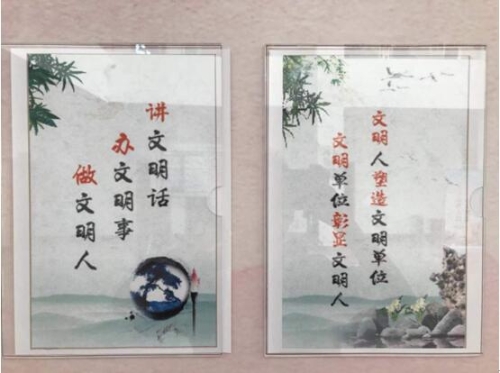 讲文明话
办文明事
做文明人
文明人塑造文明单位
文明单位彰显文明人